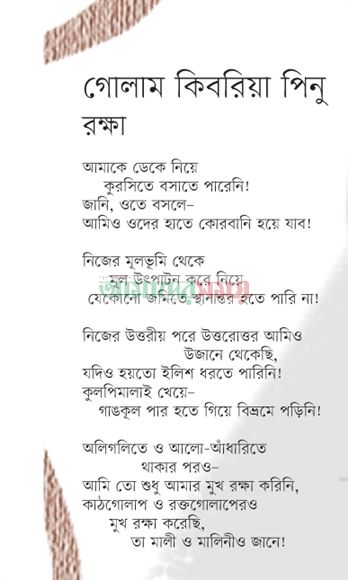 গোলাম কিবরিয়া পিনু
রক্ষা
আমাকে ডেকে নিয়ে
কুরসিতে বসাতে পারেনি!
জানি, ওতে বসলে–
আমিও ওদের হাতে কোরবানি হয়ে যাব!
নিজের মূলভূমি থেকে
মূল উৎপাটন করে নিয়ে
আমাদেরসময়
যেকোনো জমিতে স্থানান্তর হতে পারি না!
নিজের উত্তরীয় পরে উত্তরোত্তর আমিও
উজানে থেকেছি,
যদিও হয়তো ইলিশ ধরতে পারিনি!
কুলপিমালাই খেয়ে–
গাঙকূল পার হতে গিয়ে বিভ্রমে পড়িনি!
অলিগলিতে ও আলো-আঁধারিতে
থাকার পরও–
আমি তো শুধু আমার মুখ রক্ষা করিনি,
কাঠগোলাপ ও রক্তগোলাপেরও
মুখ রক্ষা করেছি,
তা মালী ও মালিনীও জানে!